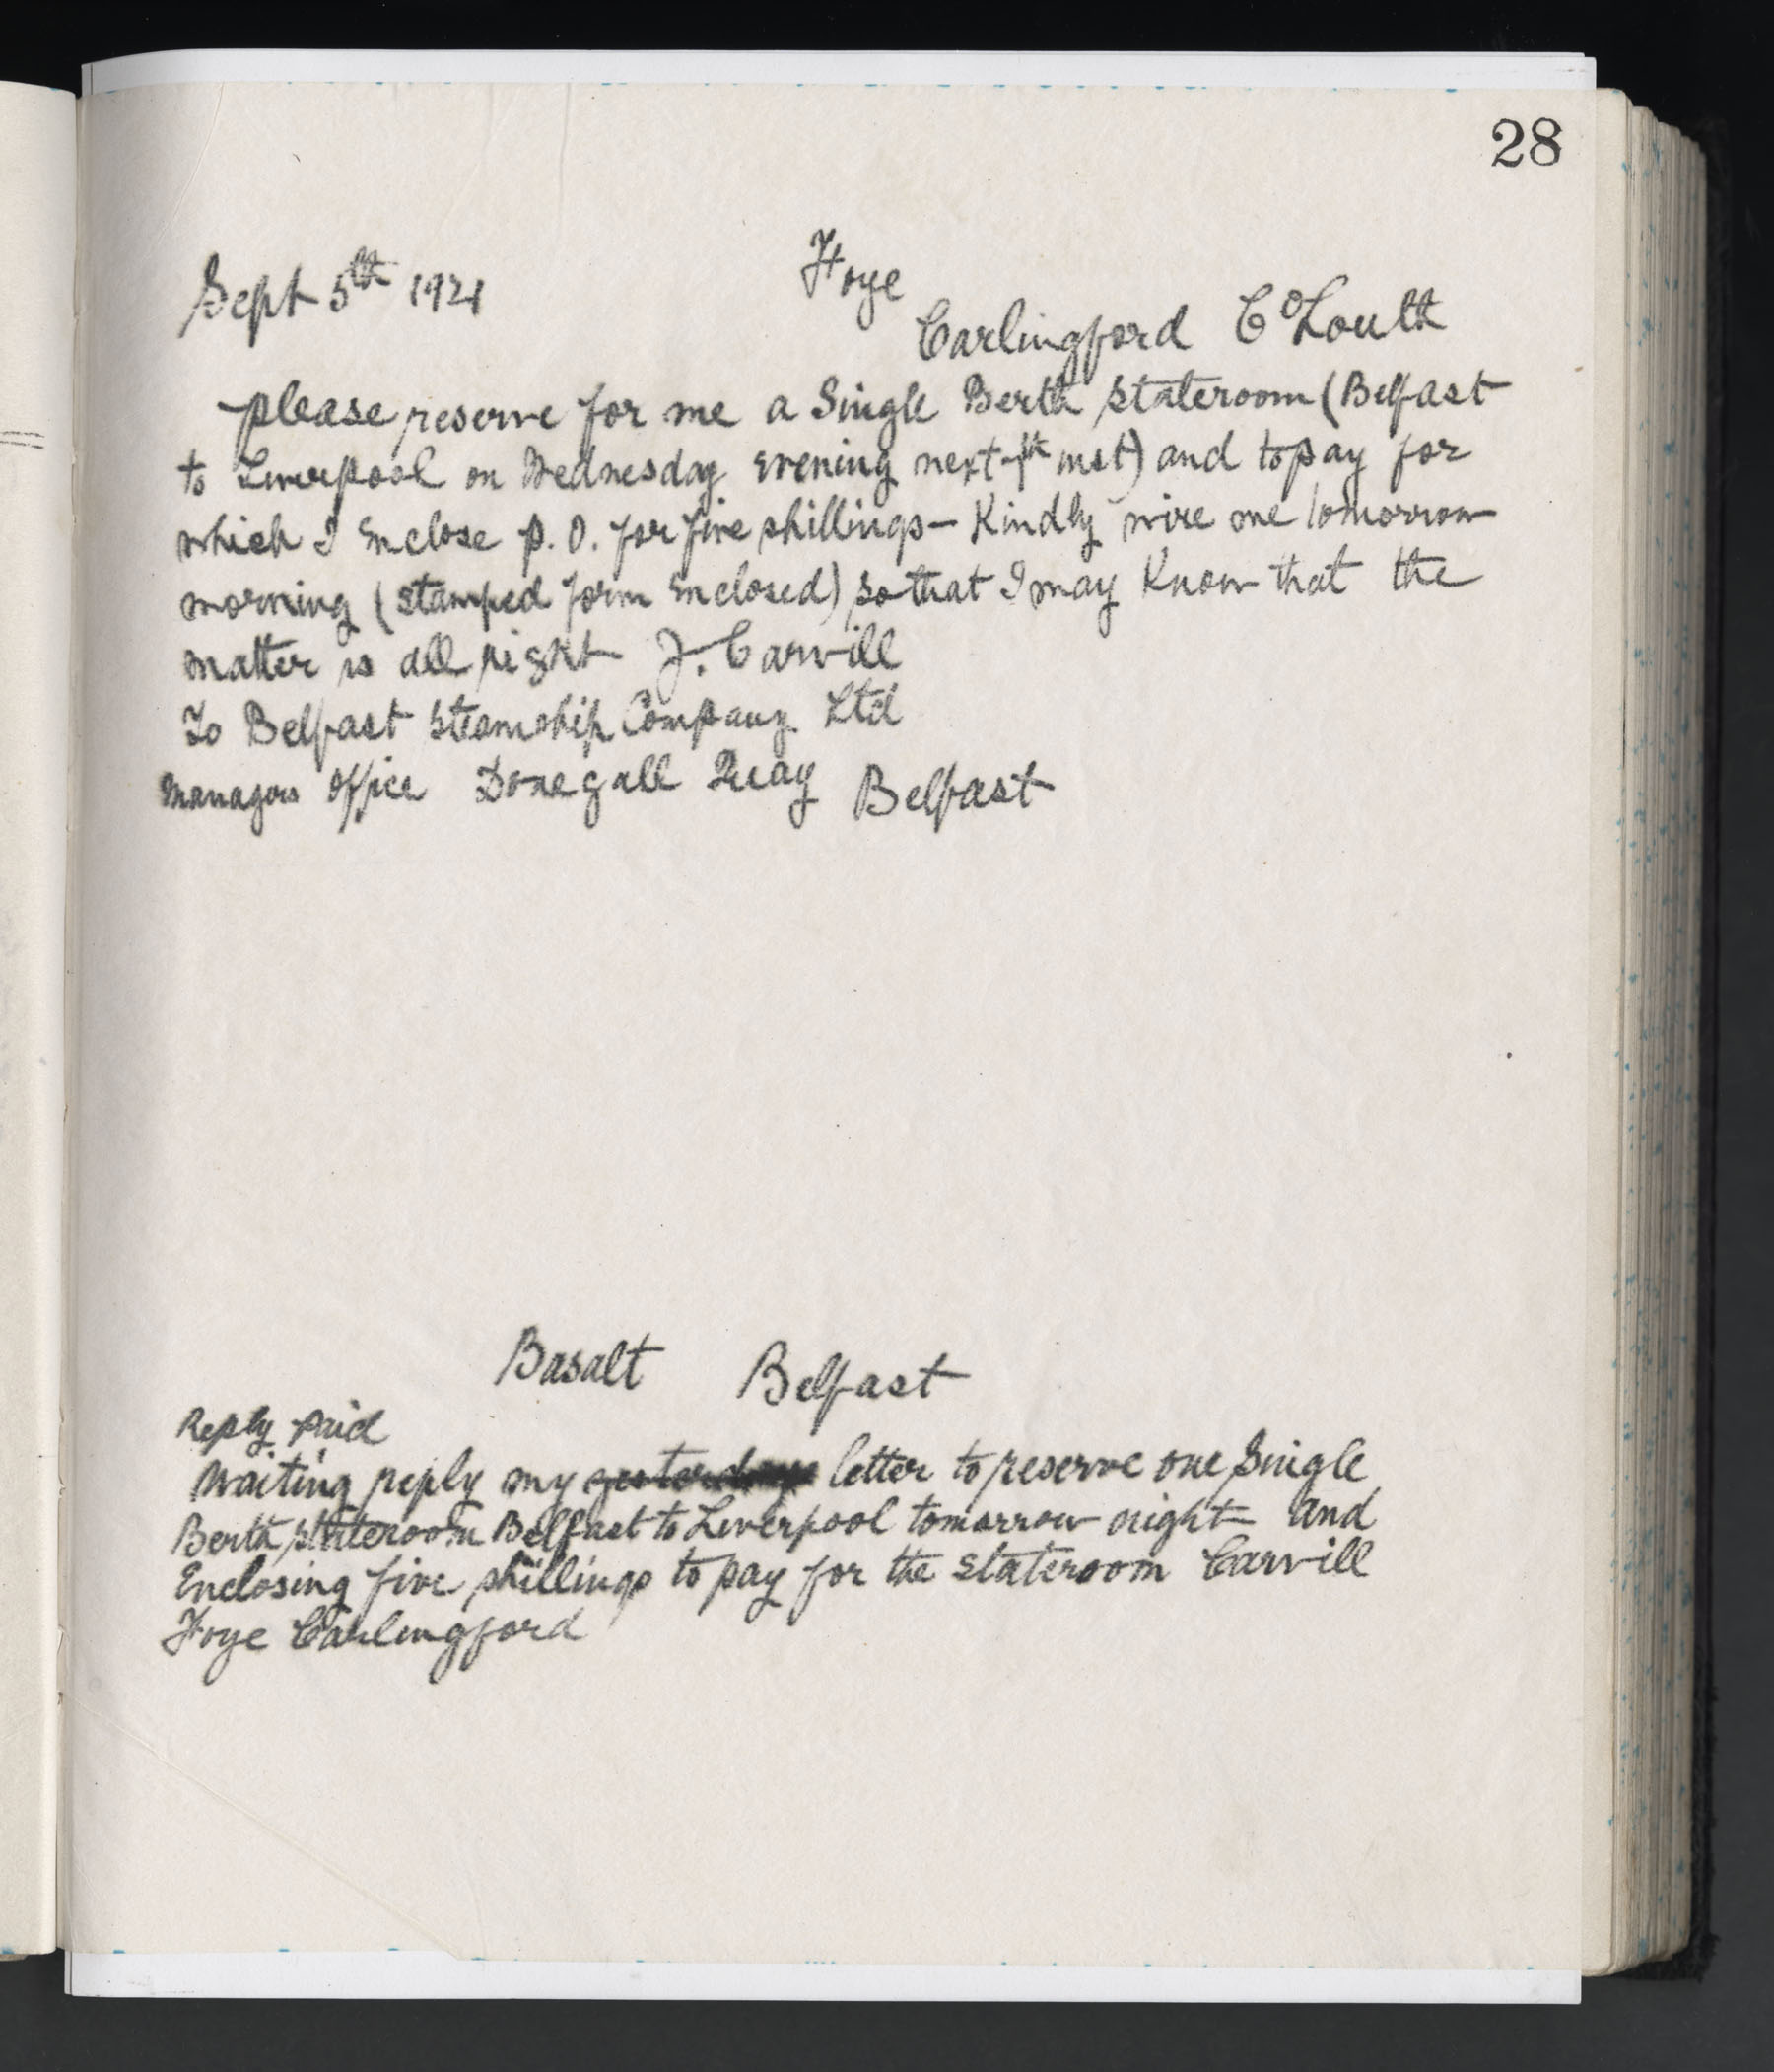 28
Sept 5th 1921
Foye
Carlingford Co Louth
please reserve for me a Single Berth stateroom (Belfast
to Liverpool on Wednesday Evening next 7th inst) and to pay for
which I Enclose P. O. for five shillings – Kindly wire me tomorrow
morning (stamped form Enclosed) so that I may Know that the
matter is all right J. Carvill
To Belfast Steamship Company Ltd
Managers Office Donegall Quay Belfast
Basalt Belfast
Reply Paid
Waiting reply my yesterdays letter to reserve one Single
Berth stateroom Belfast to Liverpool tomorrow night and
Enclosing five shillings to pay for the stateroom Carvill
Foye Carlingford